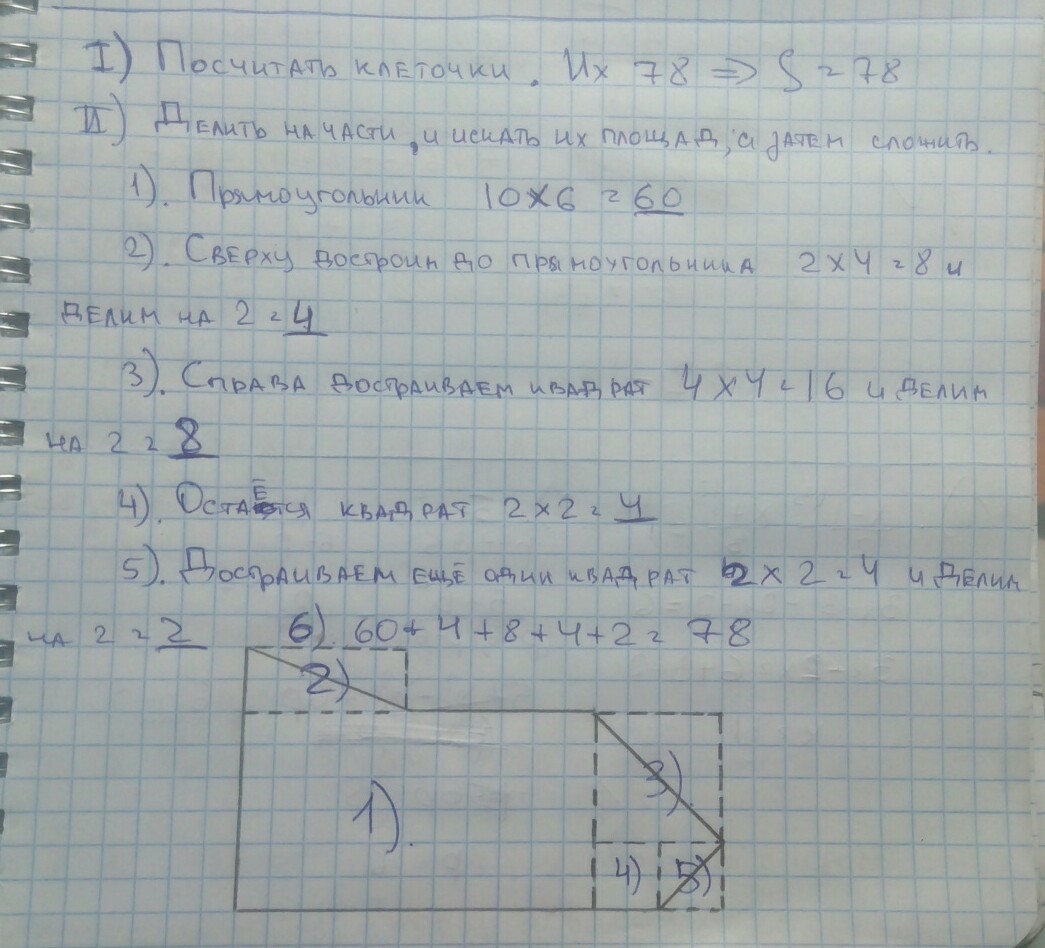 I) Посчитать клеточки. Их 78 => S = 78
II) Делить на части, и искать их площад, а затем сложить.
1). Прямоугольник 10x6 = 60
2). Сверху достроим до прямоугольника 2x4=8 и
делим на 2 = 4
3). Справа достраиваем квадрат 4x4=16 и делим
на 2 = 8
4). Остаётся квадрат 2x2= 4
5). Достраиваем ещё один квадрат 2x2=4 и делим
на 2 = 2 6). 60+4+8+4+2= 78
2)
3)
1).
4) 5)